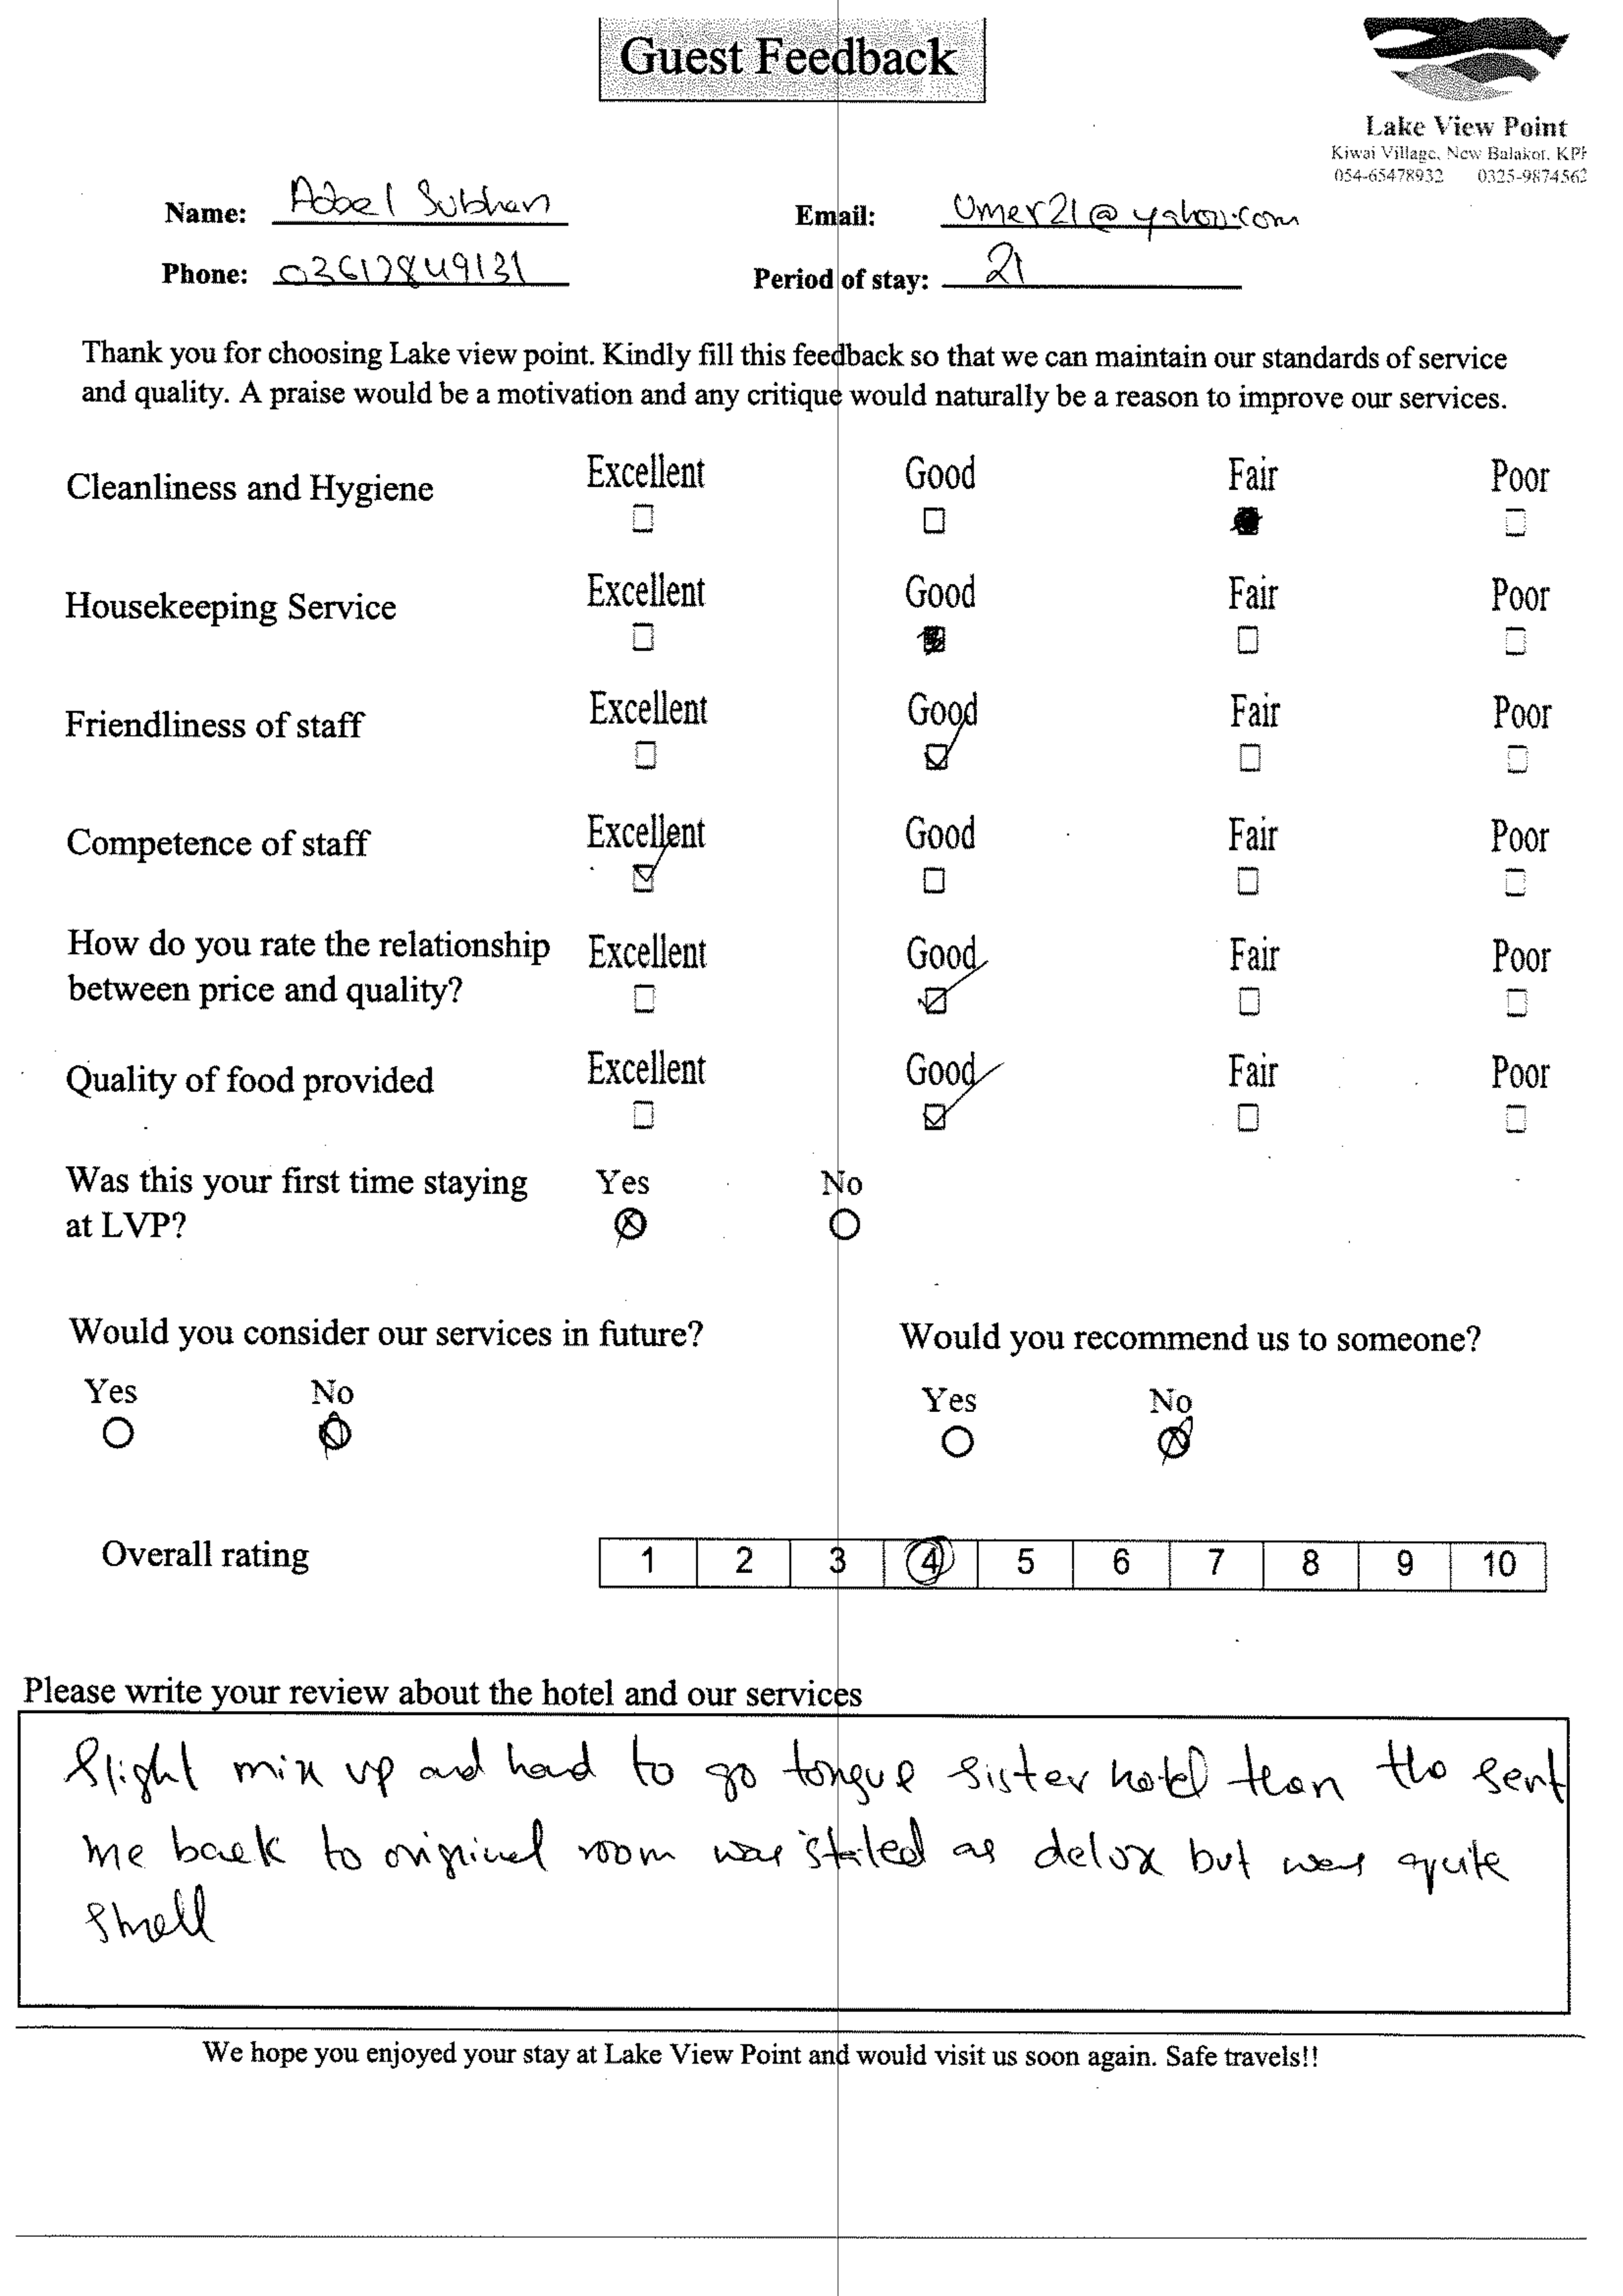 Guest Feedback
Lake View Point
Kiwai Village, New Balakot, KPK
054-65478932 0325-9874562
Name: Adbel Subhan Email: Umer21@yahoo.com
Phone: 03617849131 Period of stay: 21
Thank you for choosing Lake view point. Kindly fill this feedback so that we can maintain our standards of service
and quality. A praise would be a motivation and any critique would naturally be a reason to improve our services.
Cleanliness and Hygiene Excellent Good Fair Poor
Housekeeping Service Excellent Good Fair Poor
Friendliness of staff Excellent Good Fair Poor
Competence of staff Excellent Good Fair Poor
How do you rate the relationship
between price and quality? Excellent Good Fair Poor
Quality of food provided Excellent Good Fair Poor
Was this your first time staying Yes No
at LVP?
Would you consider our services in future? Would you recommend us to someone?
Yes No Yes No
Overall rating 1 2 3 4 5 6 7 8 9 10
Please write your review about the hotel and our services
Slight mix up and had to go tongue sister hotel then the sent
me back to original room was stated as delux but was quite
small
We hope you enjoyed your stay at Lake View Point and would visit us soon again. Safe travels!!